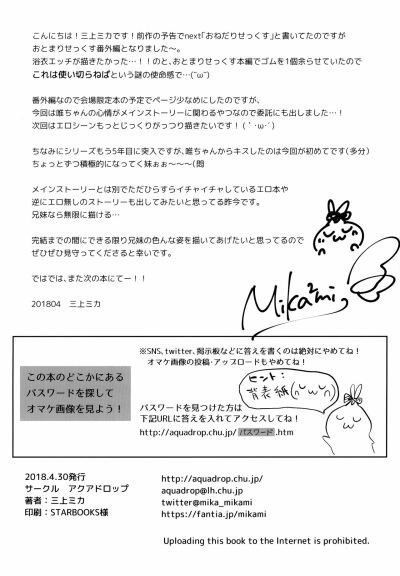 こんにちは！三上ミカです！前作の予告でnext「おねだりせっくす」と書いてたのですが
おとまりせっくす番外編となりました〜。
浴衣エッチが描きたかった…！！のと、おとまりせっくす本編でゴムを1個余らせていたので
これは使い切らねばという謎の使命感で…(˘ω˘)
番外編なので会場限定本の予定でページ少なめにしたのですが、
今回は唯ちゃんの心情がメインストーリーに関わるやつなので委託にも出しました…！
次回はエロシーンもっとじっくりがっつり描きたいです！(｀･ω･´)
ちなみにシリーズもう5年目に突入ですが、唯ちゃんからキスしたのは今回が初めてです(多分)
ちょっとずつ積極的になってく妹ぉぉ〜〜〜(悶
メインストーリーとは別でただひらすらイチャイチャしているエロ本や
逆にエロ無しのストーリーも出してみたいと思ってる昨今です。
兄妹なら無限に描ける…
完結までの間にできる限り兄妹の色んな姿を描いてあげたいと思ってるので
ぜひぜひ見守ってくださると幸いです。
ではでは、また次の本にてー！！
201804　三上ミカ
Mika2mi
※SNS、twitter、掲示板などに答えを書くのは絶対にやめてね！
オマケ画像の投稿・アップロードもやめてね！
この本のどこかにある
パスワードを探して
オマケ画像を見よう！
ヒント：
背表紙(˘ω˘)
パスワードを見つけた方は
下記URLに答えを入れてアクセスしてね！
http://aquadrop.chu.jp/パスワード.htm
2018.4.30発行
サークル　アクアドロップ
著者：三上ミカ
印刷：STARBOOKS様
http://aquadrop.chu.jp/
aquadrop@lh.chu.jp
twitter@mika_mikami
https://fantia.jp/mikami
Uploading this book to the Internet is prohibited.